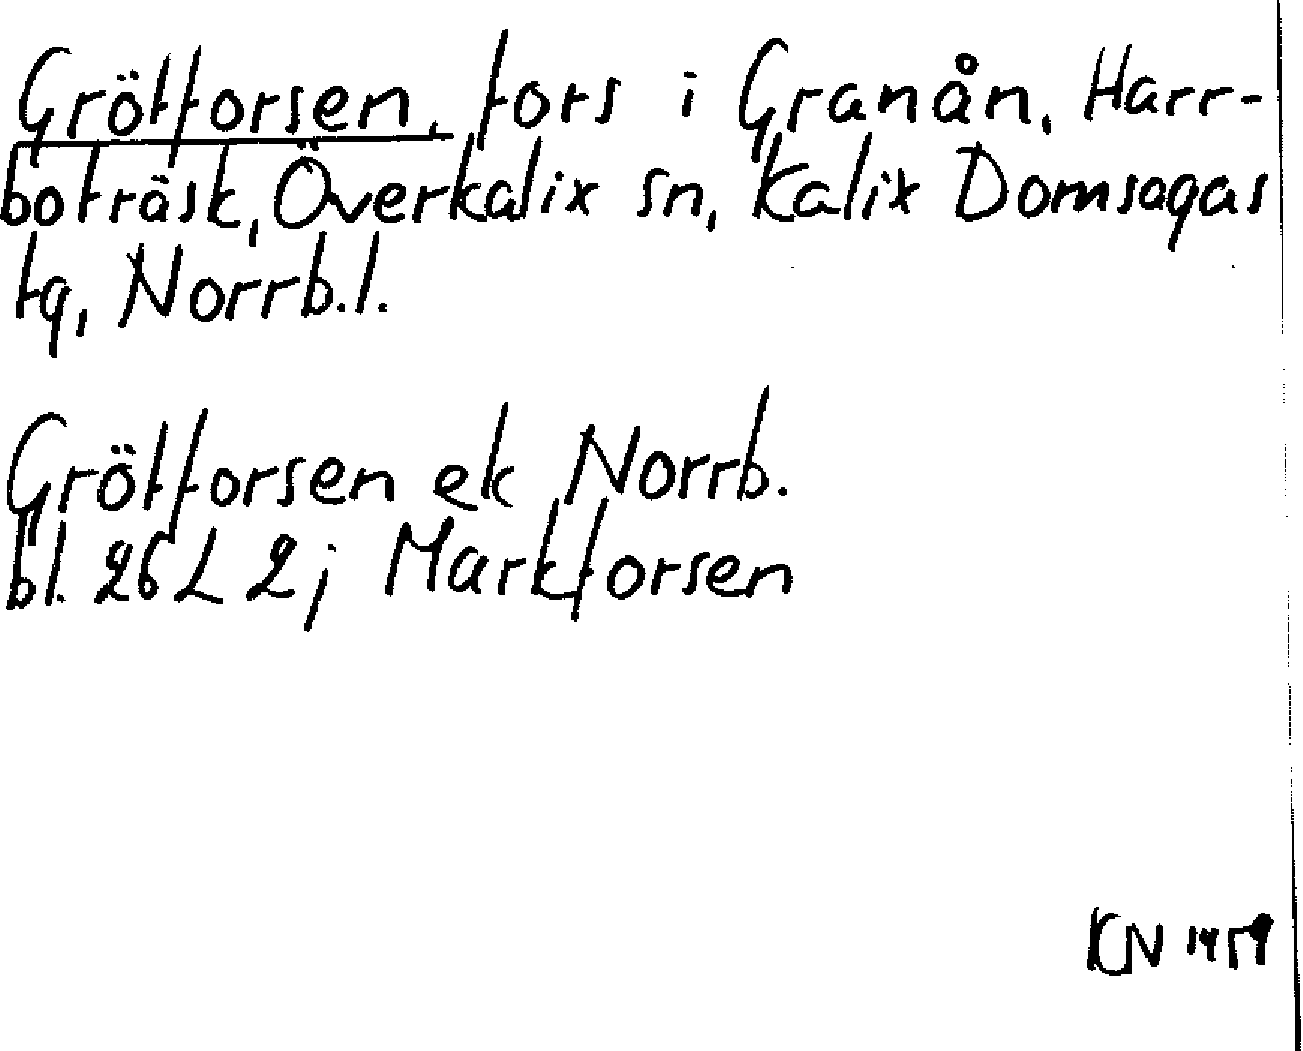 Grötforsen, fors i Granån, Harr-
boträsk, Överkalix sn, Kalix Domsagas
tg, Norrb.l.
Grötforsen ek Norrb.
bl. 26 L 2; Markforsen
KN